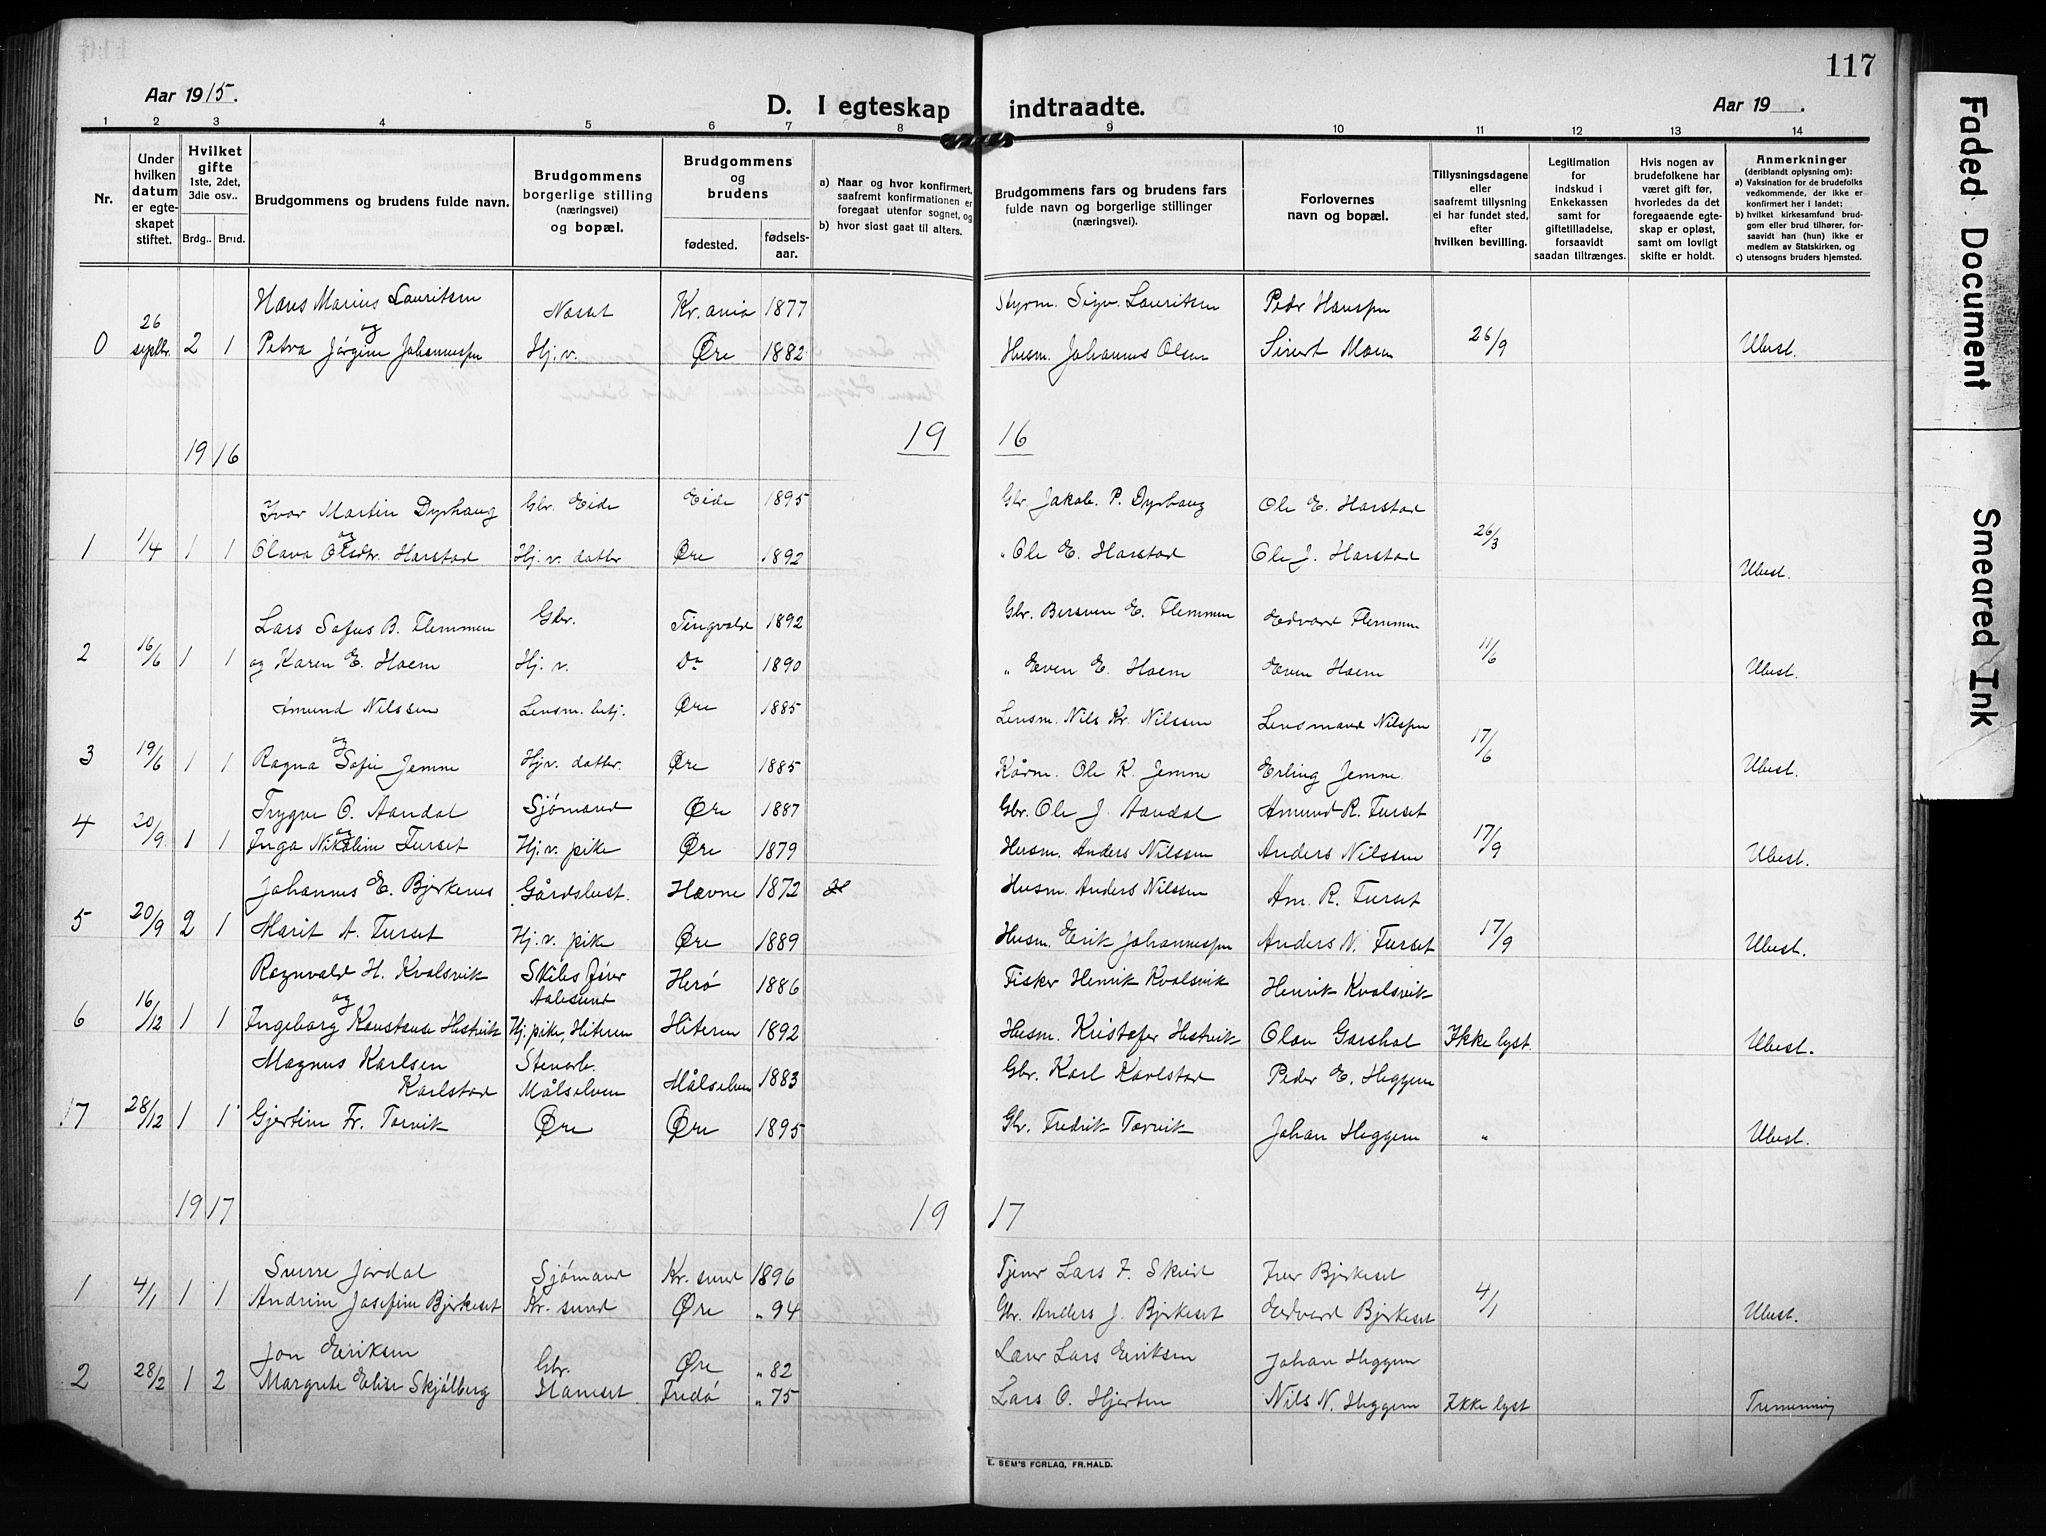 117
Aar 1915.
D. I egteskap indtraadte.
Aar 19 .
1 2 3 4 5 6 7 8 9 10 11 12 13 14
Nr.
Under hvilken datum er egteskapet stiftet.
Hvilket gifte 1ste, 2det, 3die osv..
Brdg.. Brud.
Brudgommens og brudens fulde navn.
Brudgommens borgerlige stilling (næringsvei) og bopæl.
Brudgommens og brudens
fødested. fødselsaar.
a) Naar og hvor konfirmert, saafremt konfirmationen er foregaat utenfor sognet, og
b) hvor sidst gaat til alters.
Brudgommens fars og brudens fars fulde navn og borgerlige stillinger (næringsvei)
Forlovernes navn og bopæl.
Tillysningsdagene eller saafremt tillysning ei har fundet sted, efter hvilken bevilling.
Legitimation for indskud i Enkekassen samt for giftetilladelse, forsaavidt saadan tiltrænges.
Hvis nogen av brudefolkene har været gift før, hvorledes da det foregaaende egteskap er opløst, samt om lovligt skifte er holdt.
Anmerkninger (deriblandt oplysning om):
a) Vaksination for de brudefolks vedkommende, der ikke er konfirmert her i landet;
b) hvilket kirkesamfund brudgom eller brud tilhører, forsaavidt han (hun) ikke er medlem av Statskirken, og
c) utensogns bruders hjemsted.
Hans Marius Lauritsen Næset Kr.ania 1877 Styrm. Sigv. Lauritsen Peder Hanssen
0 26 septbr. 2 1 og Petra Jørgine Johannessen Hj. v. Øre 1882 Husm. Johannes Olsen Sivert Moen 26/9 Ubest.
19 16 19 16
Ivar Martin Dyrhaug Gbr. Eide Eide 1895 Gbr. Jakob. P. Dyrhaug Ole E. Harstad
1 1/4 1 1 og Olava Olsdtr. Harstad Hj. v. datter Øre 1892 " Ole E. Harstad Ole J. Harstad 26/3 Ubest.
Lars Sofus B. Flemmen Gbr. Tingvold 1892 Gbr. Bersven E. Flemmen Edvard Flemmen
2 16/6 1 1 og Karen E. Hoem Hj. v. Do 1890 " Even E. Hoem Even Hoem 11/6 Ubest.
Amund Nilssen Lensm. betj. Øre 1885 Lensm. Nils Kr. Nilssen Lensmand Nilssen
3 19/6 1 1 og Ragna Sofie Jemne Hj.v. datter. Øre 1885 Kårm. Ole K. Jemne Erling Jemne 17/6 Ubest.
Trygve O. Aandal Sjømand Øre 1887 Gbr. Ole J. Aandal Amund R. Furset
4 20/9 1 1 og Inga Nikoline Furset Hj. v. pike Øre 1879 Husm. Anders Nilssen Anders Nilssen 17/9 Ubest.
Johannes E. Bjerkenes Gårdsbest. Hevne 1872 Husm. Anders Nilssen Am. R. Furset
5 20/9 2 1 Marit A. Furset Hj. v. pike Øre 1889 Husm. Erik Johannessen Anders N. Furset 17/9 Ubest.
Ragnvald H. Kvalsvik Aalesund Herø 1886 Fisker Henrik Kvalsvik Henrik Kvalsvik
6 16/12 1 1 og Ingeborg Konstanse Hestvik Hj. pike, Hiteren Hiteren 1892 Husm. Kristofer Hestvik Olav Garshol Ikke lyst. Ubest.
Magnus Karlsen Karlstad Stenarb. Målselven Målselven 1883 Gbr. Karl Karlstad Peder E. Heggem
17 28/12 1 1 Gjertine Fr. Torvik Øre Øre 1895 Gbr. Fredrik Torvik Johan Heggem " Ubest.
19 17 19 17
Sverre Jordal Sjømand Kr. sund 1896 Tjener Lars F. Skeid Iver Bjerkeset
1 4/1 1 1 Andrine Josefine Bjerkeset Kr. sund Øre " 94 Gbr. Anders J. Bjerkeset Edvard Bjerkeset 4/1 Ubest.
Jon Eriksen Gbr. Øre " 82 Lars Eriksen Johan Heggem
2 28/2 1 2 Margrete Elise Skjølberg Hamset Fredø " 75 Lars O. Hjerten Nils N. Heggem Ikke lyst
E. SEM'S FORLAG, FR.HALD.
Faded Document
Smeared Ink